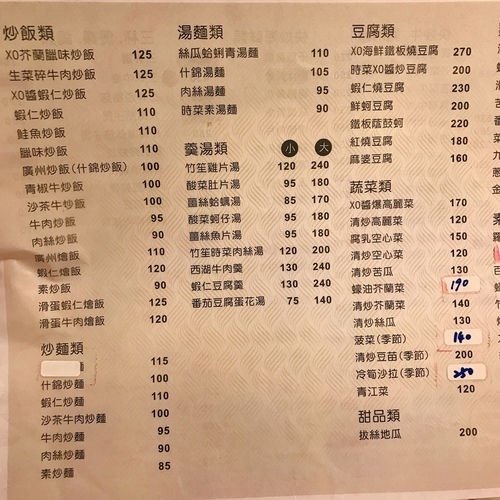 炒飯類
XO芥蘭臘味炒飯 125
生菜碎牛肉炒飯 125
XO醬蝦仁炒飯 120
蝦仁炒飯 110
鮭魚炒飯 110
臘味炒飯 110
廣州炒飯(什錦炒飯) 100
青椒牛炒飯 100
沙茶牛炒飯 100
牛肉炒飯 95
肉絲炒飯 90
廣州燴飯 110
蝦仁燴飯 120
素炒飯 90
滑蛋蝦仁燴飯 125
滑蛋牛肉燴飯 120
炒麵類
115
什錦炒麵 100
蝦仁炒麵 110
沙茶牛肉炒麵 100
牛肉炒麵 95
肉絲炒麵 90
素炒麵 85
湯麵類
絲瓜蛤蜊青湯麵 110
什錦湯麵 105
肉絲湯麵 95
時菜素湯麵 90
羹湯類 小 大
竹笙雞片湯 120 240
酸菜肚片湯 95 180
薑絲蛤蠣湯 85 170
酸菜蚵仔湯 95 180
薑絲魚片湯 95 180
竹笙時菜肉絲湯 120 200
西湖牛肉羹 130 240
蝦仁豆腐羹 130 240
番茄豆腐蛋花湯 75 140
豆腐類
XO海鮮鐵板燒豆腐 270
時菜XO醬炒豆腐 200
蝦仁燒豆腐 230
鮮蚵豆腐 200
鐵板蔭鼓蚵 220
紅燒豆腐 180
麻婆豆腐 160
蔬菜類
XO醬爆高麗菜 170
清炒高麗菜 120
腐乳空心菜 150
清炒空心菜 120
清炒苦瓜 130
蠔油芥蘭菜 190
清炒芥蘭菜 140
清炒絲瓜 130
菠菜(季節) 140
清炒豆苗(季節) 200
冷筍沙拉(季節) 250
青江菜 120
甜品類
拔絲地瓜 200